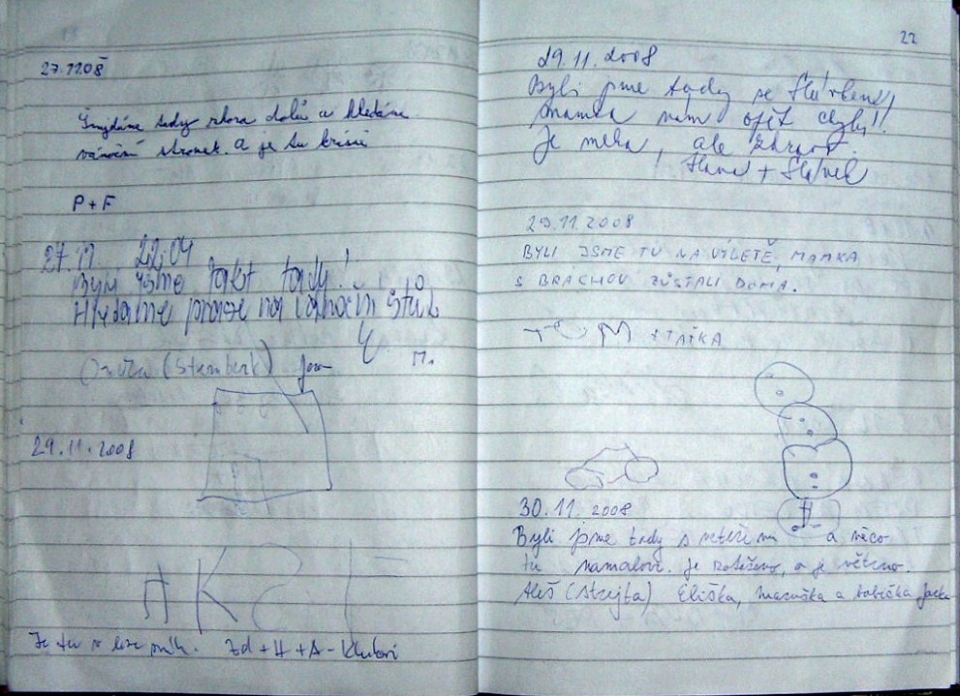 22
27.11.08
tady shora dolů a hledáme
vánoční stromek. a je tu krásně
P+F
27.11. 22.04
Byli jsme také tady!
Hledáme prase na vánoční stůl
(Šternberk)
29.11.2008
Je tu v lese sníh. Zd+H+A-Klubovi
29.11.2008
Byli jsme tady se
mamka nám opět chybí!
Je mlha, ale
29.11.2008
BYLI JSME TU NA VÝLETĚ, MAMKA
S BRÁCHOU ZŮSTALI DOMA.
TOM + TAŤKA
30.11.2008
Byli jsme tady s neteřemi a něco
tu namalovali. Je zataženo, a je větrno.
Aleš (strejda) Eliška, Maruška a babička